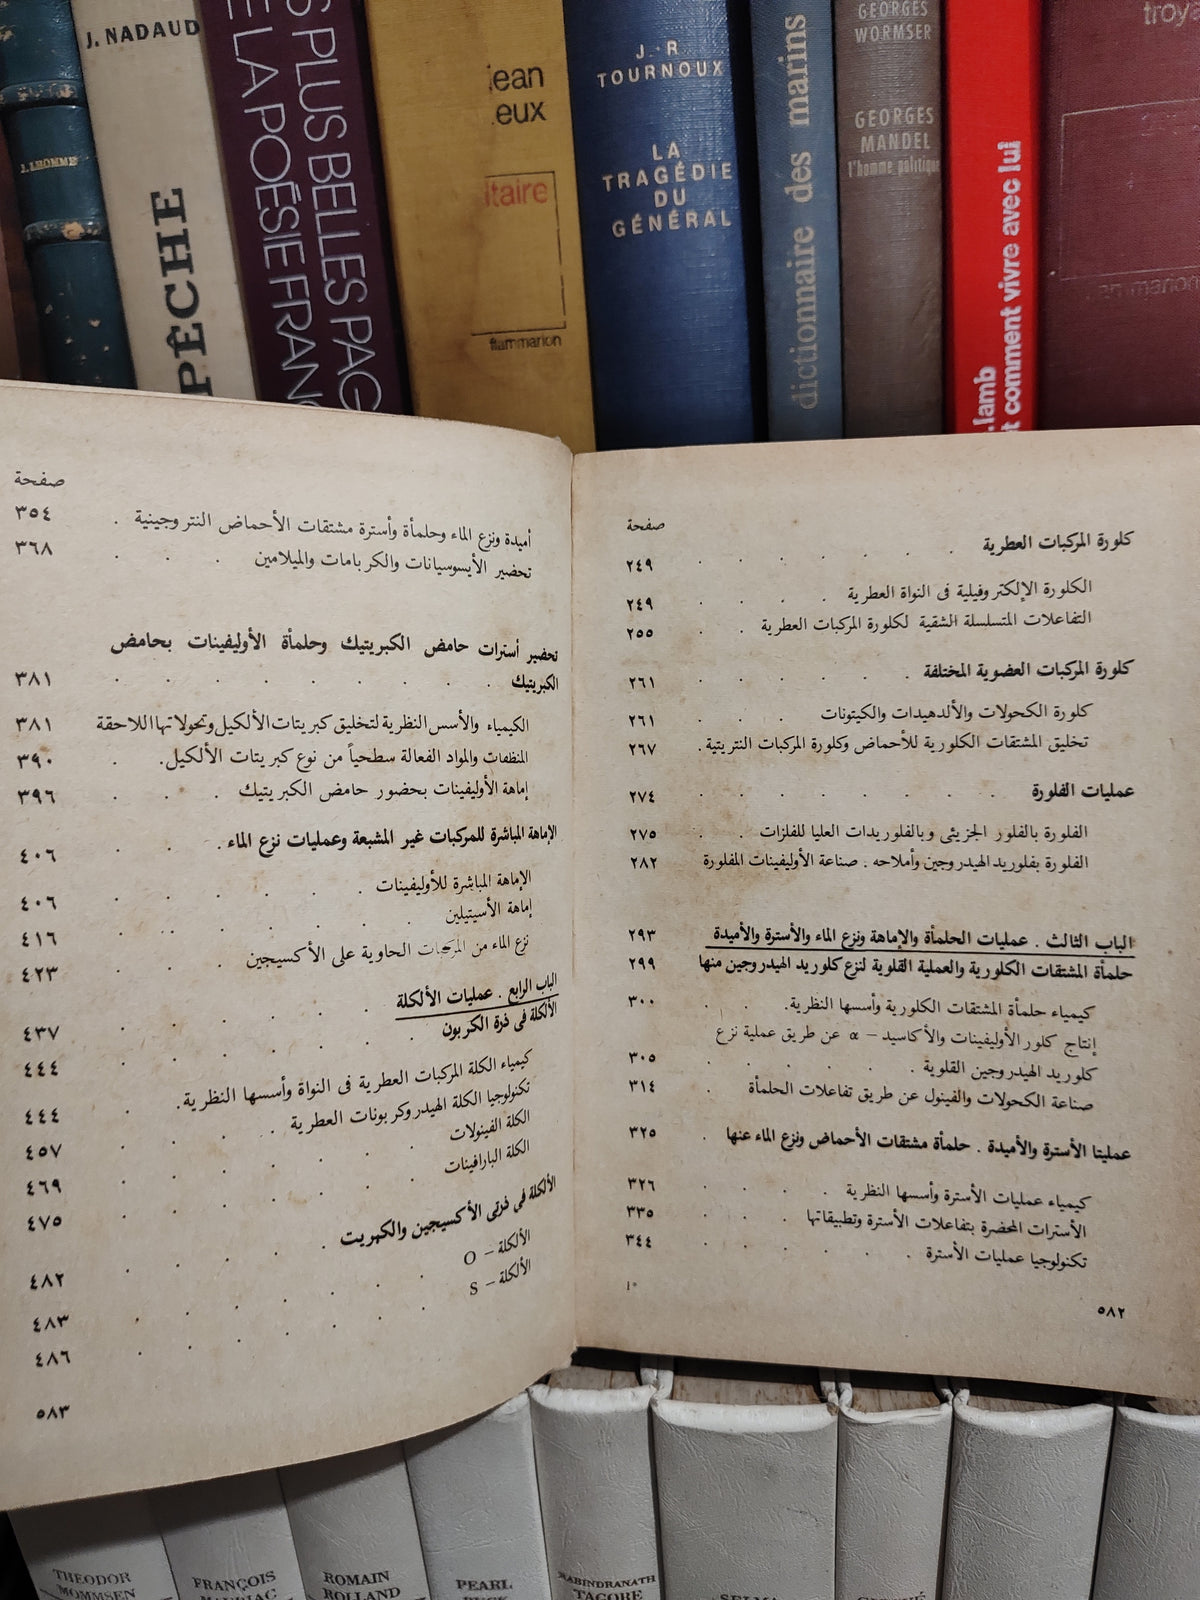 J. LHOMME
J. NADAUD
PÊCHE
S PLUS BELLES PAG
E LA POÉSIE FRANÇ
jean
eux
itaire
flammarion
J. R
TOURNOUX
LA
TRAGÉDIE
DU
GÉNÉRAL
dictionnaire des marins
GEORGES
WORMSER
GEORGES
MANDEL
l'homme politique
lamb
t comment vivre avec lui
troya
صفحة
كلورة المركبات العطرية . . . . . ٢٤٩
الكلورة الإلكتروفيلية فى النواة العطرية . . . ٢٤٩
التفاعلات المتسلسلة الشقية لكلورة المركبات العطرية . . ٢٥٥
كلورة المركبات العضوية المختلفة . . . . . ٢٦١
كلورة الكحولات والألدهيدات والكيتونات . . . ٢٦١
تخليق المشتقات الكلورية للأحماض وكلورة المركبات النتريتية . ٢٦٧
عمليات الفلورة . . . . . . . ٢٧٤
الفلورة بالفلور الجزيئى وبالفلوريدات العليا للفلزات . . ٢٧٥
الفلورة بفلوريد الهيدروجين وأملاحه . صناعة الأوليفينات المفلورة ٢٨٢
الباب الثالث . عمليات الحلمأة والإماهة ونزع الماء والأسترة والأميدة ٢٩٣
حلمأة المشتقات الكلورية والعملية القلوية لنزع كلوريد الهيدروجين منها ٢٩٩
كيمياء حلمأة المشتقات الكلورية وأسسها النظرية . . . ٣٠٠
إنتاج كلور الأوليفينات والأكاسيد – α عن طريق عملية نزع
كلوريد الهيدروجين القلوية . . . . . ٣٠٥
صناعة الكحولات والفينول عن طريق تفاعلات الحلمأة . ٣١٤
عمليتا الأسترة والأميدة . حلمأة مشتقات الأحماض ونزع الماء عنها . ٣٢٥
كيمياء عمليات الأسترة وأسسها النظرية . . . . ٣٢٦
الأسترات المحضرة بتفاعلات الأسترة وتطبيقاتها . . . ٣٣٥
تكنولوجيا عمليات الأسترة . . . . . ٣٤٤
٥٨٢
صفحة
أميدة ونزع الماء وحلمأة وأسترة مشتقات الأحماض النتروجينية . ٣٥٤
تحضير الأيسوسيانات والكربامات والميلامين . . . ٣٦٨
تحضير أسترات حامض الكبريتيك وحلمأة الأوليفينات بحامض
الكبريتيك . . . . . . . . . ٣٨١
الكيمياء والأسس النظرية لتخليق كبريتات الألكيل وتحولاتها اللاحقة ٣٨١
المنظفات والمواد الفعالة سطحياً من نوع كبريتات الألكيل . . ٣٩٠
إماهة الأوليفينات بحضور حامض الكبريتيك . . . ٣٩٦
الإماهة المباشرة للمركبات غير المشبعة وعمليات نزع الماء . . . ٤٠٦
الإماهة المباشرة للأوليفينات . . . . . ٤٠٦
إماهة الأسيتيلين . . . . . . ٤١٦
نزع الماء من المركبات الحاوية على الأكسيجين . . . ٤٢٣
الباب الرابع . عمليات الألكلة . . . . . ٤٣٧
الألكلة فى ذرة الكربون . . . . . . ٤٤٤
كيمياء الكلة المركبات العطرية فى النواة وأسسها النظرية . . ٤٤٤
تكنولوجيا الكلة الهيدروكربونات العطرية . . . ٤٥٧
الكلة الفينولات . . . . . . ٤٦٩
الكلة البارافينات . . . . . . ٤٧٥
الألكلة فى ذرتى الأكسيجين والكبريت . . . . ٤٨٢
الألكلة – O . . . . . . ٤٨٣
الألكلة – S . . . . . . ٤٨٦
٥٨٣
THEODOR
MOMMSEN
FRANÇOIS
MAURIAC
ROMAIN
ROLLAND
PEARL
BUCK
RABINDRANATH
TAGORE
SELMA